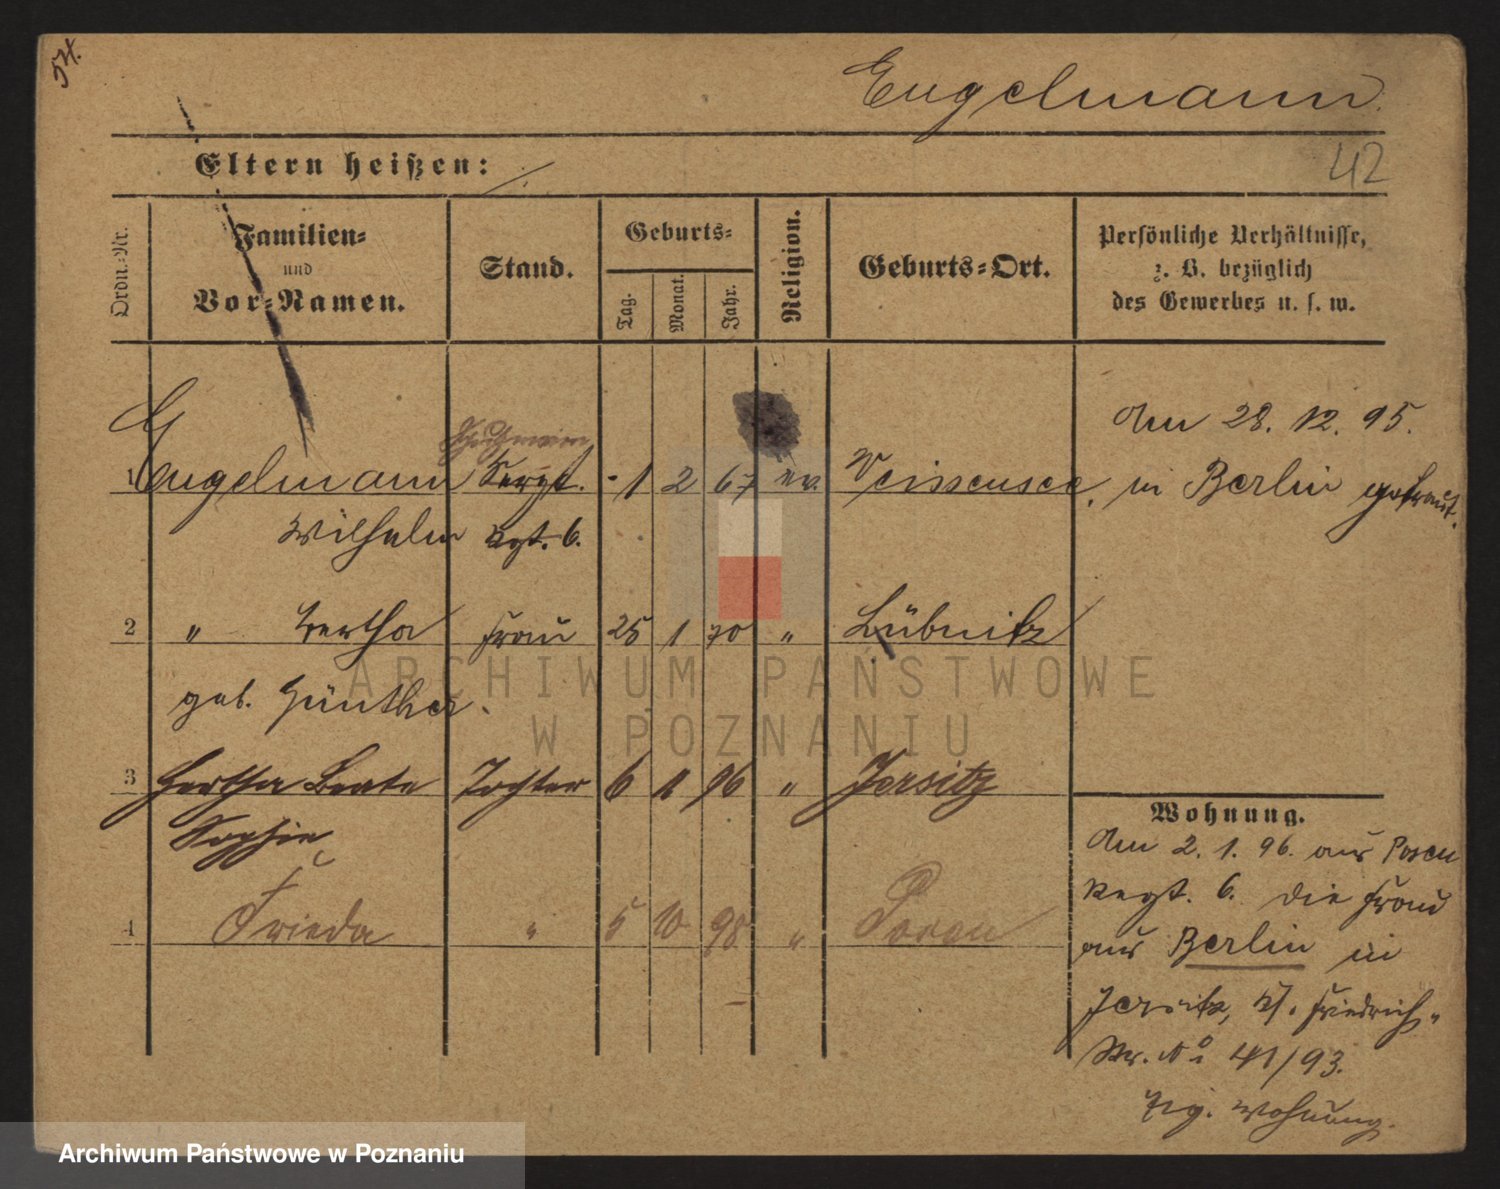 54.
Engelmann.
42
Eltern heißen:
Ordn.-Nr.
Familien-
und
Vor-Namen.
Stand.
Geburts-
Tag.
Monat.
Jahr.
Religion.
Geburts-Ort.
Persönliche Verhältnisse,
z. B. bezüglich
des Gewerbes u. s. w.
Schutzmann
Am 28. 12. 95.
1 Engelmann Sergt. 1 2 67 ev. Weissensee, in Berlin getraut.
Wilhelm Rgt. 6.
2 " Bertha Frau 25 1 70 " Lübnitz
geb. Günther.
3 Hertha Beate Tochter 6 11 96 " Jersitz
Sophie
4 Frieda " 5 10 98 " Posen
Wohnung.
Am 2. 1. 96. aus Posen
Regt. 6. die Frau
aus Berlin in
Jersitz, Kf. Friedrich-
Str. No 41/93.
Eig. Wohnung.
ARCHIWUM PAŃSTWOWE
W POZNANIU
Archiwum Państwowe w Poznaniu